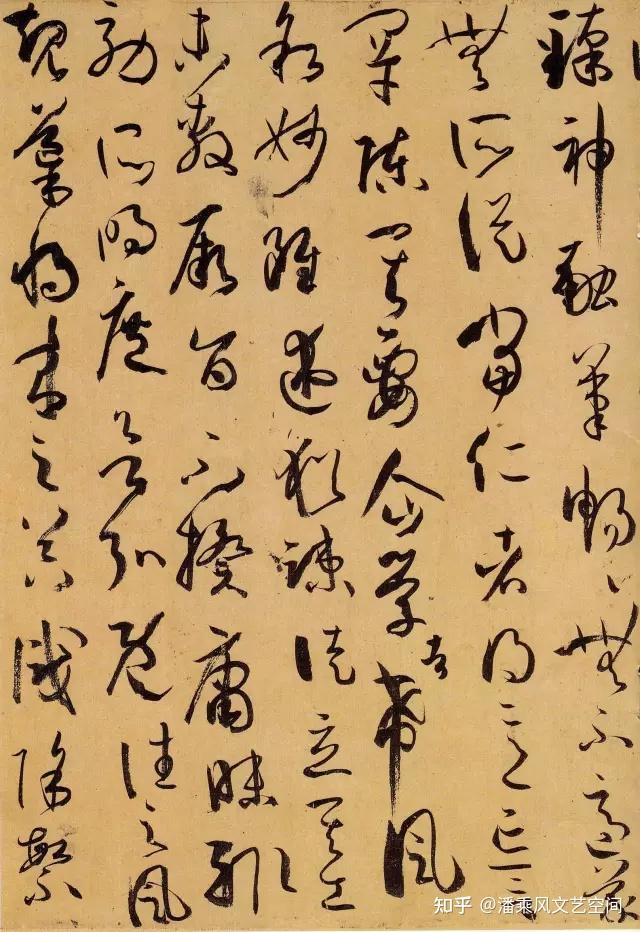 臻神融筆暢〻無不適蒙
無所從當仁者得意忘言
罕陳其要企學者希風
敘妙雖述猶疎徒立其工
未敷厥旨不揆庸昧輒
効所明庶欲弘既往之風
規導將來之器識除繁
知乎 @潘乘风文艺空间